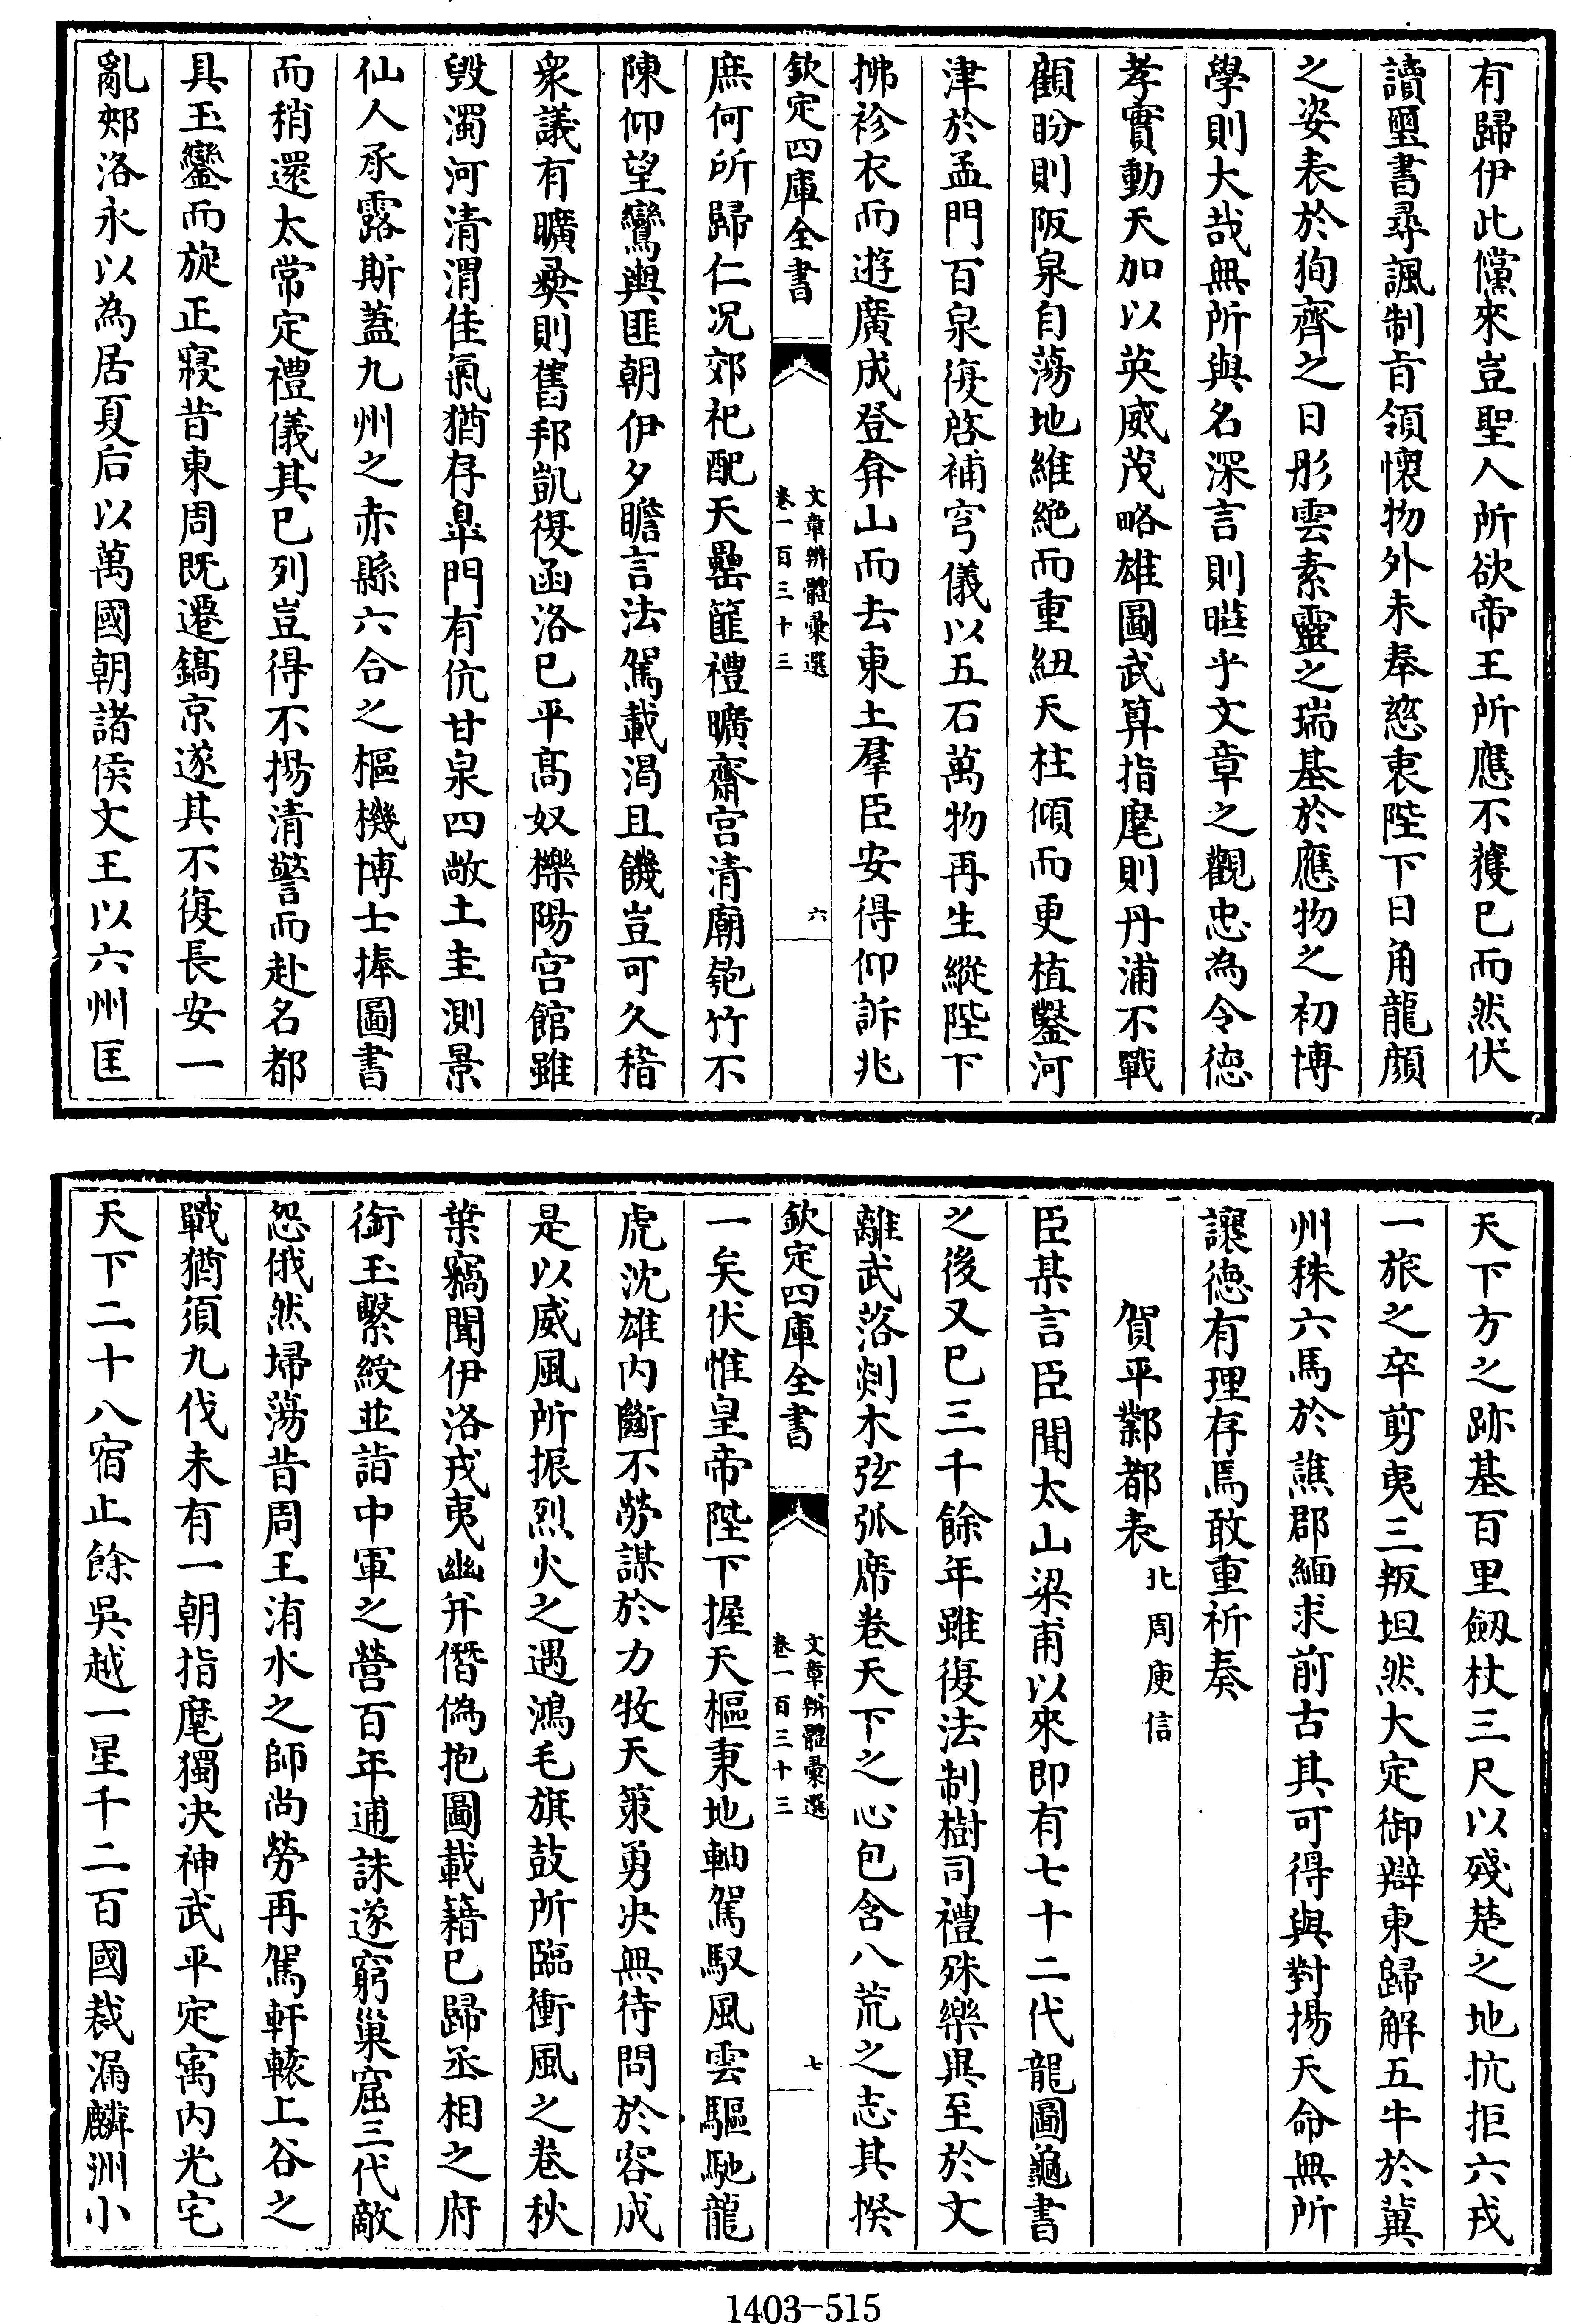 有歸伊此儻來豈聖人所欲帝王所應不獲已而然伏
讀璽書尋諷制㫖領懷物外未奉慈衷陛下日角龍顔
之姿表於狥齊之日彤雲素靈之瑞基於應物之初博
學則大哉無所與名深言則曄乎文章之觀忠為令德
孝實動天加以英威茂略雄圖武算指麾則丹浦不戰
顧盼則阪泉自蕩地維絶而重紐天柱傾而更植鑿河
津於孟門百泉復啓補穹儀以五石萬物再生縱陛下
拂袗衣而遊廣成登弇山而去東土羣臣安得仰訴兆
欽定四庫全書
文章辨體彙選
卷一百三十三
六
庶何所歸仁况郊祀配天罍篚禮曠齋宫清廟匏竹不
陳仰望鸞輿匪朝伊夕瞻言法駕載渴且饑豈可久稽
衆議有曠彛則舊邦凱復函洛已平髙奴櫟陽宫館雖
毁濁河清渭佳氣猶存臯門有伉甘泉四敞土圭測景
仙人承露斯蓋九州之赤縣六合之樞機博士捧圖書
而稍還太常定禮儀其已列豈得不揚清警而赴名都
具玉鑾而旋正寢昔東周既遷鎬京遂其不復長安一
亂郟洛永以為居夏后以萬國朝諸侯文王以六州匡
天下方之跡基百里劔杖三尺以殘楚之地抗拒六戎
一旅之卒剪夷三叛坦然大定御辯東歸解五牛於冀
州秣六馬於譙郡緬求前古其可得與對揚天命無所
讓德有理存焉敢重祈奏
賀平鄴都表北周庾信
臣某言臣聞太山梁甫以來即有七十二代龍圖龜書
之後又已三千餘年雖復法制樹司禮殊樂異至於文
離武落剡木弦弧席卷天下之心包含八荒之志其揆
欽定四庫全書
文章辨體彙選
卷一百三十三
七
一矣伏惟皇帝陛下握天樞秉地軸駕馭風雲驅馳龍
虎沈雄内斷不勞謀於力牧天策勇决無待問於容成
是以威風所振烈火之遇鴻毛旗鼓所臨衝風之卷秋
葉竊聞伊洛戎夷幽并僭偽抱圖載籍已歸丞相之府
銜玉繫綬並詣中軍之營百年逋誅遂窮巢窟三代敵
怨俄然埽蕩昔周王洧水之師尚勞再駕軒轅上谷之
戰猶須九伐未有一朝指麾獨决神武平定寓内光宅
天下二十八宿止餘吳越一星千二百國裁漏麟洲小
1403-515